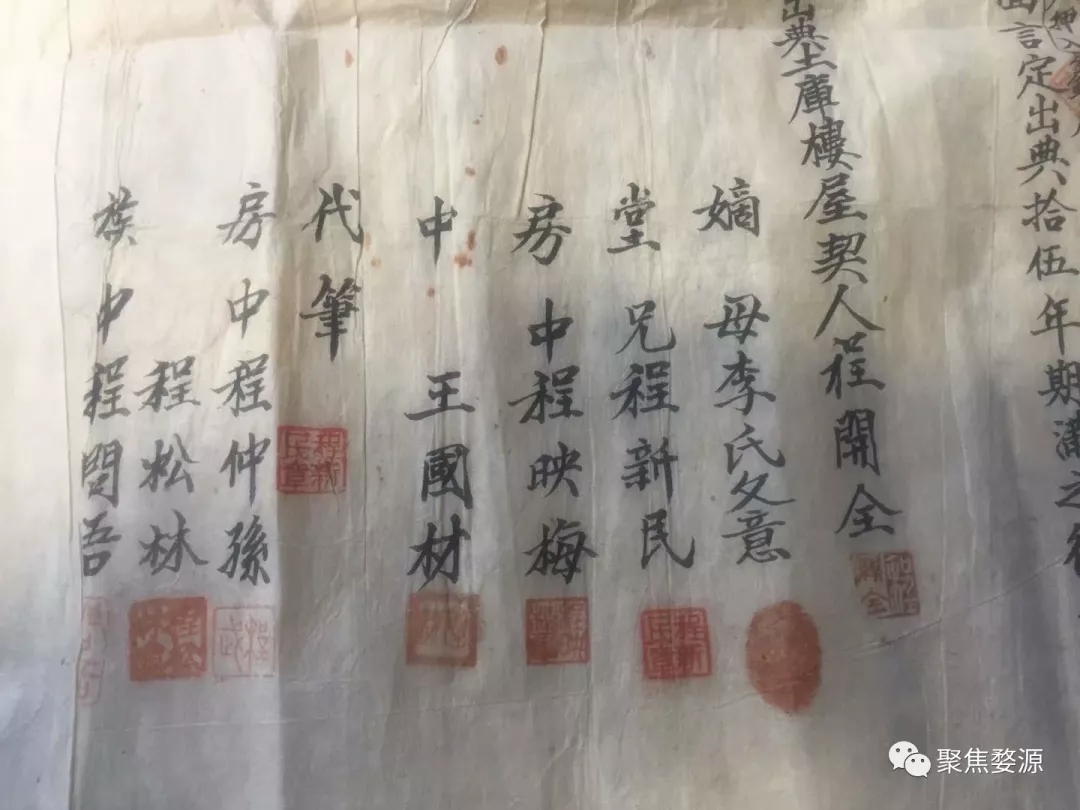 言定出典拾伍年期滿之
出典土庫樓屋契人程開全
嫡母李氏久意
堂兄程新民
程新民章
房中程映梅
中王國材
代筆
程新民章
房中程仲孫
程松林
族中程問吾
聚焦婺源